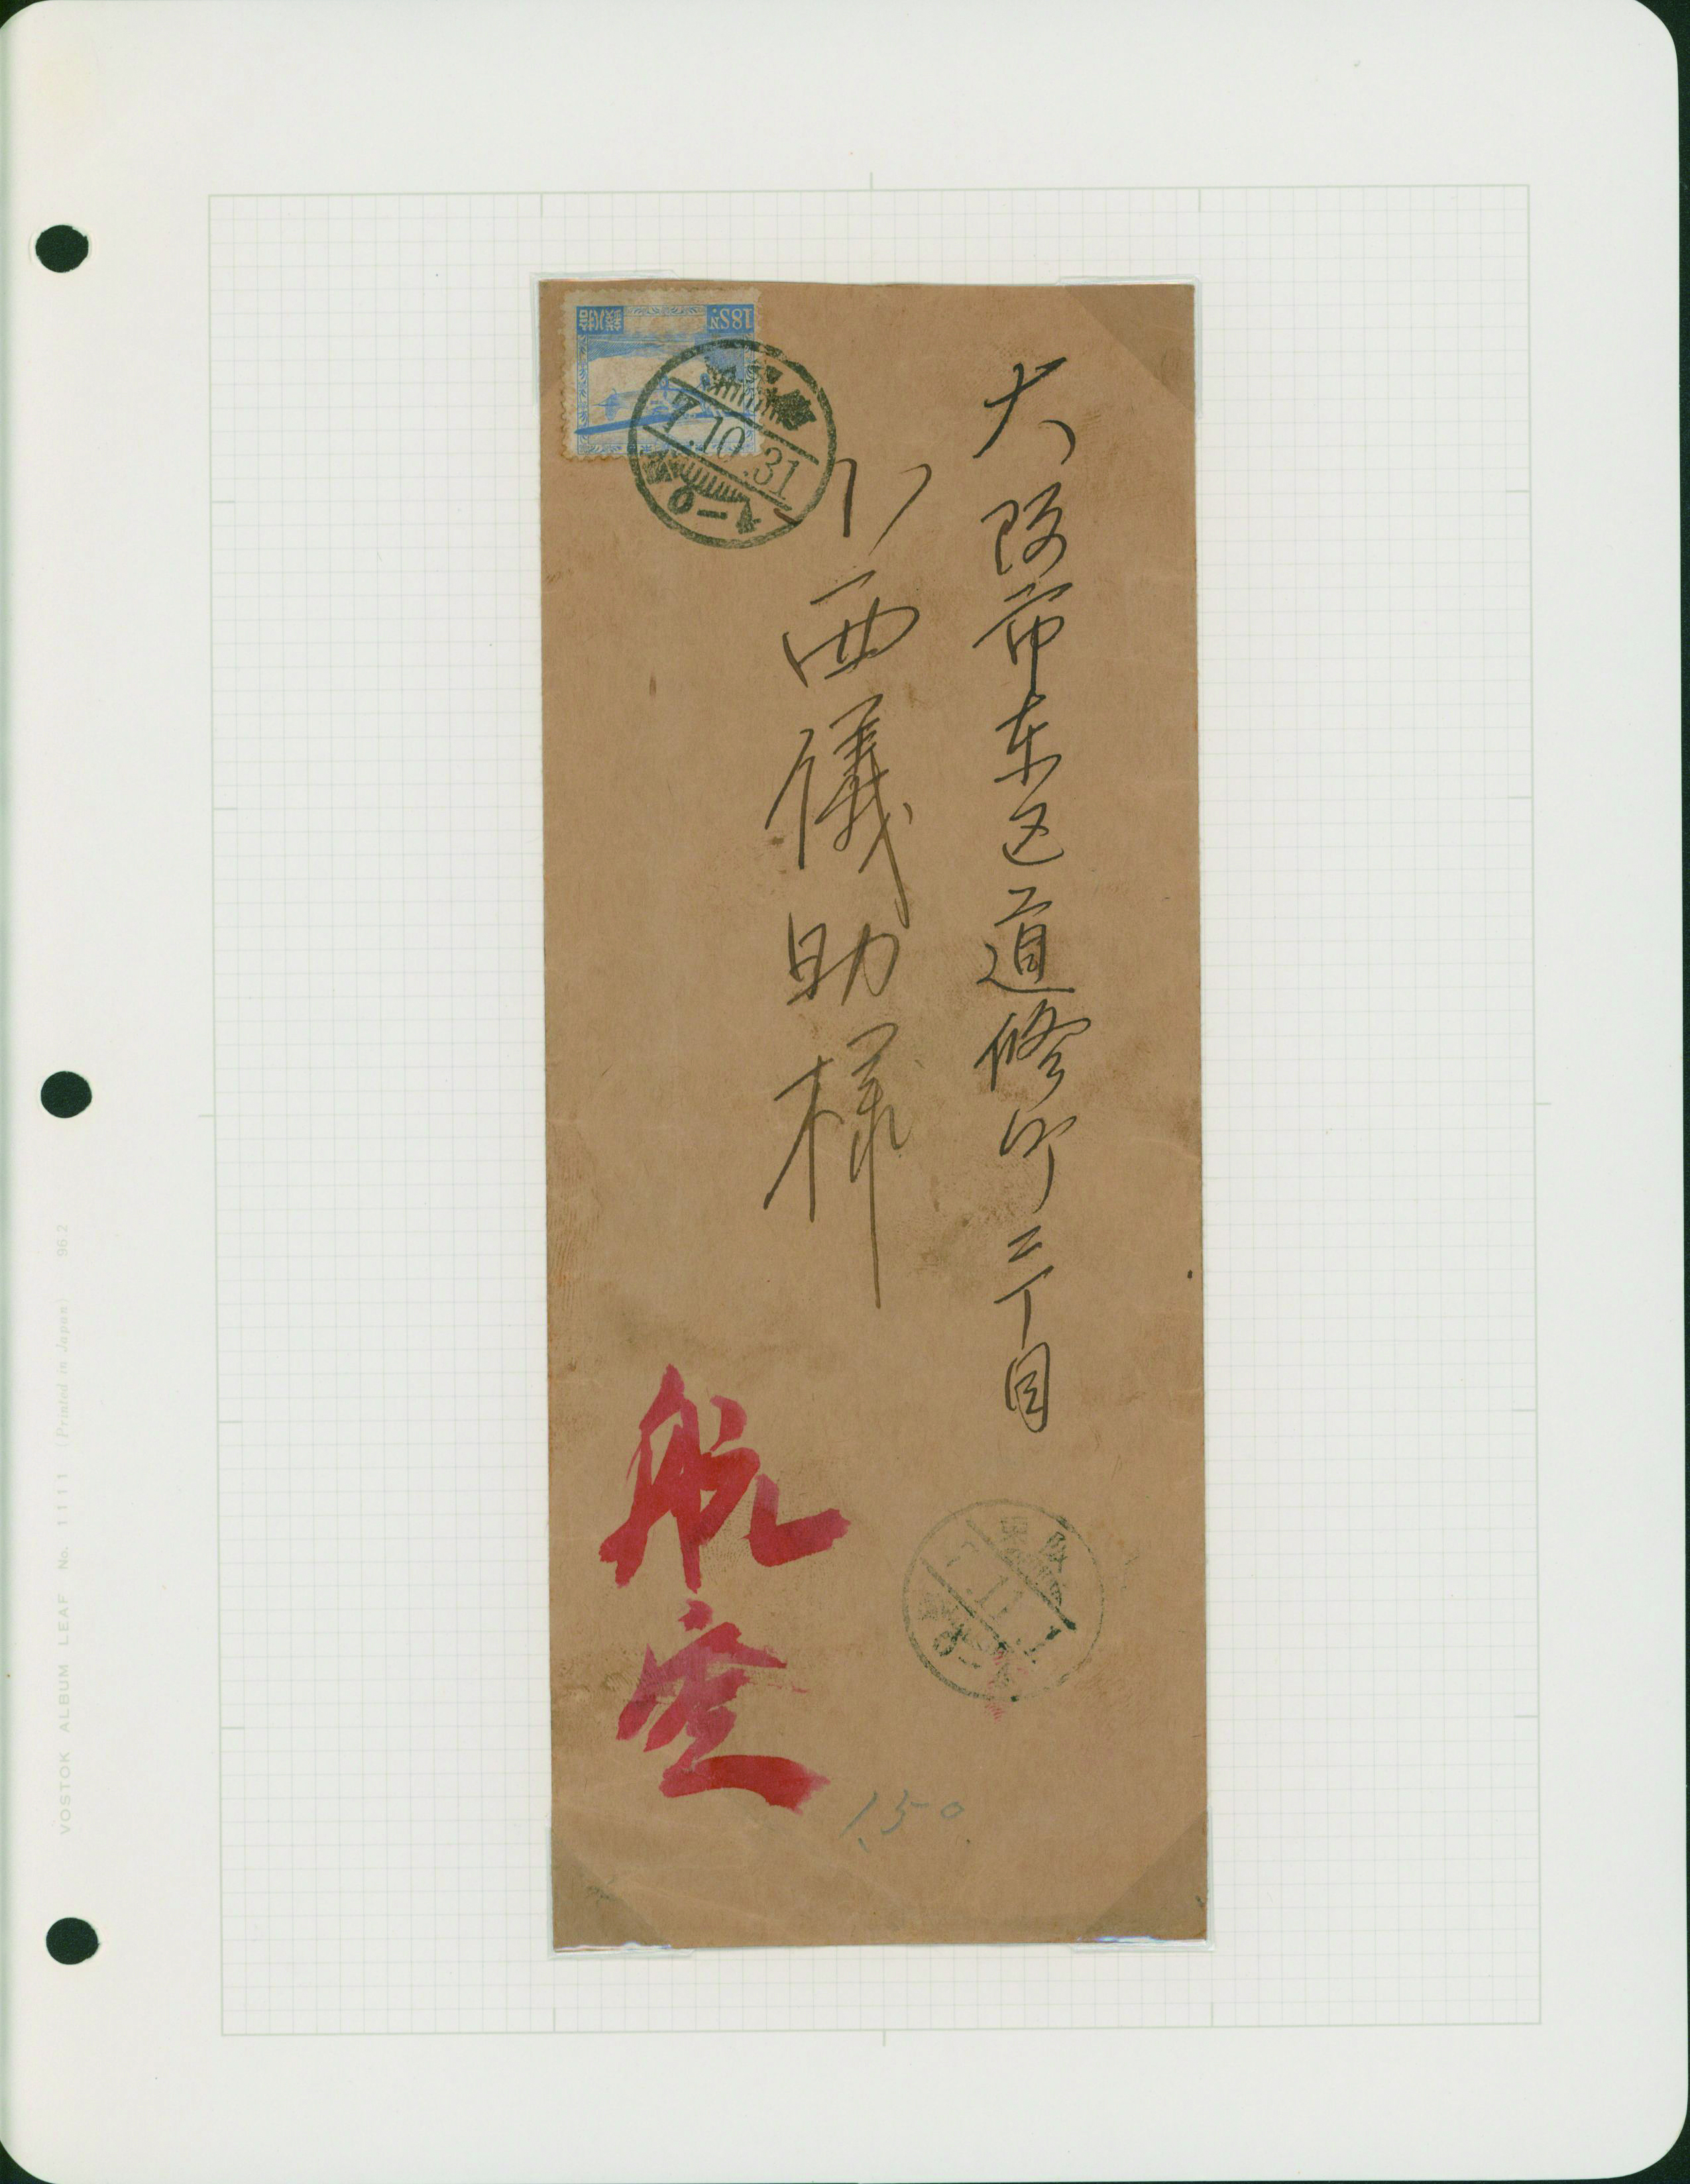 大阪市东区道修町三丁目
小西儀助様
航空
18SN.
7.10.31
1.50
VOSTOK ALBUM LEAF No. 1111 (Printed in Japan) 962